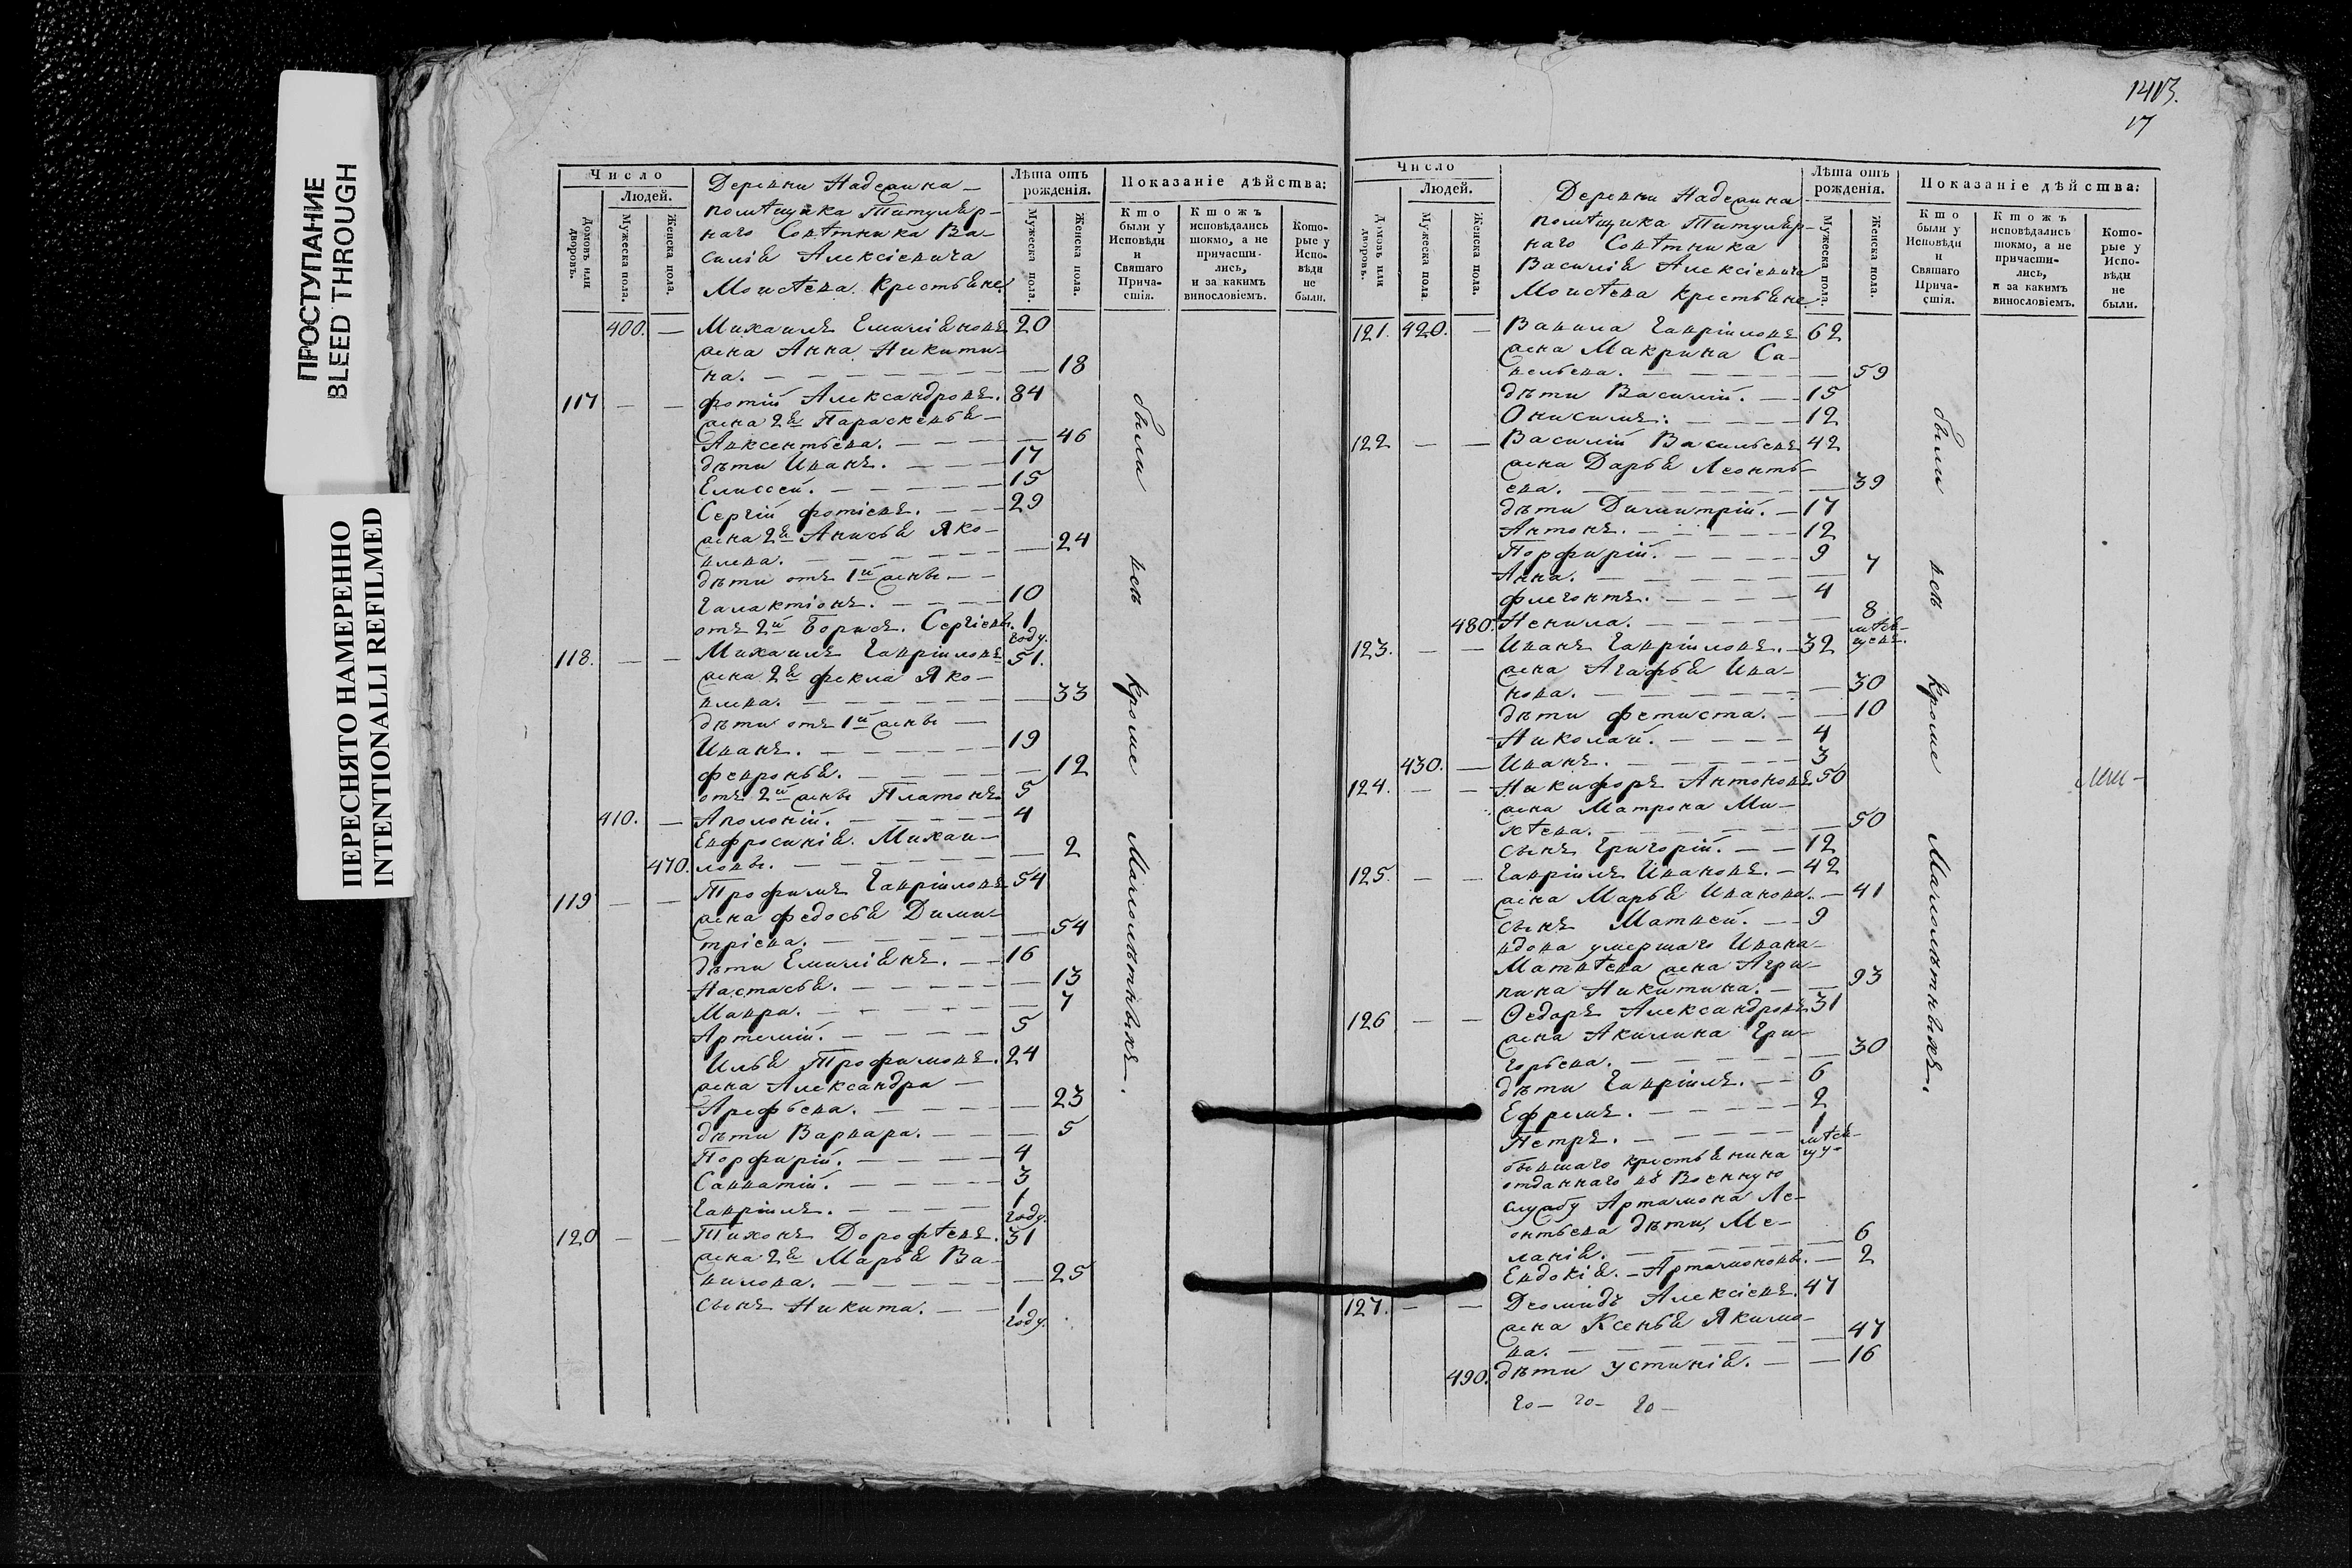 ПРОСТУПАНИЕ
BLEED THROUGH
ПЕРЕСНЯТО НАМЕРЕННО
INTENTIONALLI REFILMED
Число
Людей.
Домовъ или дворовъ.
Мужеска пола.
Женска пола.
Деревни Наделина
помѣщика Титуляр-
наго Совѣтника Ва-
силія Алексіевича
Моисѣева Крестьяне
Лѣта отъ рожденія.
Мужеска пола.
Женска пола.
Показаніе дѣйства:
Кто были у Исповѣди и Святаго Прича-стія.
Ктожъ исповѣдались токмо, а не причасти-лись, и за какимъ винословіемъ.
Кото-рые у Испо-вѣди не были.
400. — Михаилъ Емиліяновъ 20
жена Анна Никити-
на. — 18
117 — — Фотій Александровъ. 84
жена 2я Параскевья
Авксентьева. — 46
дѣти Иванъ. — 17
Елиссей. — 15
Сергій Фотіевъ. — 29
жена 2я Анисья Яко-
влева. — 24
дѣти отъ 1й жены —
Галактіонъ. — 10
отъ 2й Борисъ. Сергіевы. 1 году.
118. — — Михаилъ Гавріиловъ 51.
жена 2я Фекла Яко-
влева. — 33
дѣти отъ 1й жены —
Иванъ. — 19
Февронья. — 12
отъ 2й жены Платонъ 5
410. — Аполоній. — 4
Евфросинія. Михаи-
470. ловы. — 2
119 — — Трофимъ Гавріиловъ 54
жена Федосья Дими-
тріева. — 54
дѣти Емиліянъ. — 16
Настасья. — 13
Мавра. — 7
Артемій. — 5
Илья Трофимовъ. 24
жена Александра —
Арефьева. — 23
дѣти Варвара. — 5
Порфирій. — 4
Савватій. — 3
Гавріилъ. — 1 году.
120 — — Тихонъ Дорофѣевъ. 31
жена 2я Марья Ва-
вилова. — 25
сынъ Никита. — 1 году.
были всѣ кроме Малолѣтныхъ.
1413.
17
Число
Людей.
Домовъ или дворовъ.
Мужеска пола.
Женска пола.
Деревни Наделина
помѣщика Титуляр-
наго Совѣтника
Василія Алексіевича
Моисѣева Крестьяне
Лѣта отъ рожденія.
Мужеска пола.
Женска пола.
Показаніе дѣйства:
Кто были у Исповѣди и Святаго Прича-стія.
Ктожъ исповѣдались токмо, а не причасти-лись, и за какимъ винословіемъ.
Кото-рые у Испо-вѣди не были.
121. 420. — Вавила Гавріиловъ 62
жена Макрина Са-
вельева. — 59
дѣти Василій. — 15
Онисимъ. — 12
122 — — Василій Васильевъ 42
жена Дарья Леонть-
ева. — 39
дѣти Димитрій. — 17
Антонъ. — 12
Порфирій. — 9
Анна. — 7
Флегонтъ. — 4
480. Ненила. — 8 мѣся-цевъ.
123. — — Иванъ Гавріиловъ. — 32
жена Агафья Ива-
нова. — 30
дѣти Фетиста. — 10
Николай. — 4
430. — Иванъ. — 3
124. — — Никифоръ Антоновъ 50
жена Матрона Ми-
хѣева. — 50
сынъ Григорій. — 12
125. — — Гавріилъ Ивановъ. — 42
жена Марья Иванова. — 41
сынъ Матвей. — 9
вдова умершаго Ивана
Матвѣева жена Агри-
пина Никитина. — 93
126 — — Ѳедоръ Александровъ 31
жена Акилина Гри-
горьева. — 30
дѣти Гавріилъ. — 6
Ефремъ. — 2
Петръ. — 1 мѣся-цу
бывшаго крестьянина
отданнаго въ Военную
службу Артамона Ле-
онтьева дѣти, Ме-
ланія. — 6
Евдокія. — Артамоновы. — 2
127. — — Деомидъ Алексіевъ. 47
жена Ксенья Якимо-
ва. — 47
490. дѣти Устинія. — 16
были всѣ кроме Малолѣтныхъ.